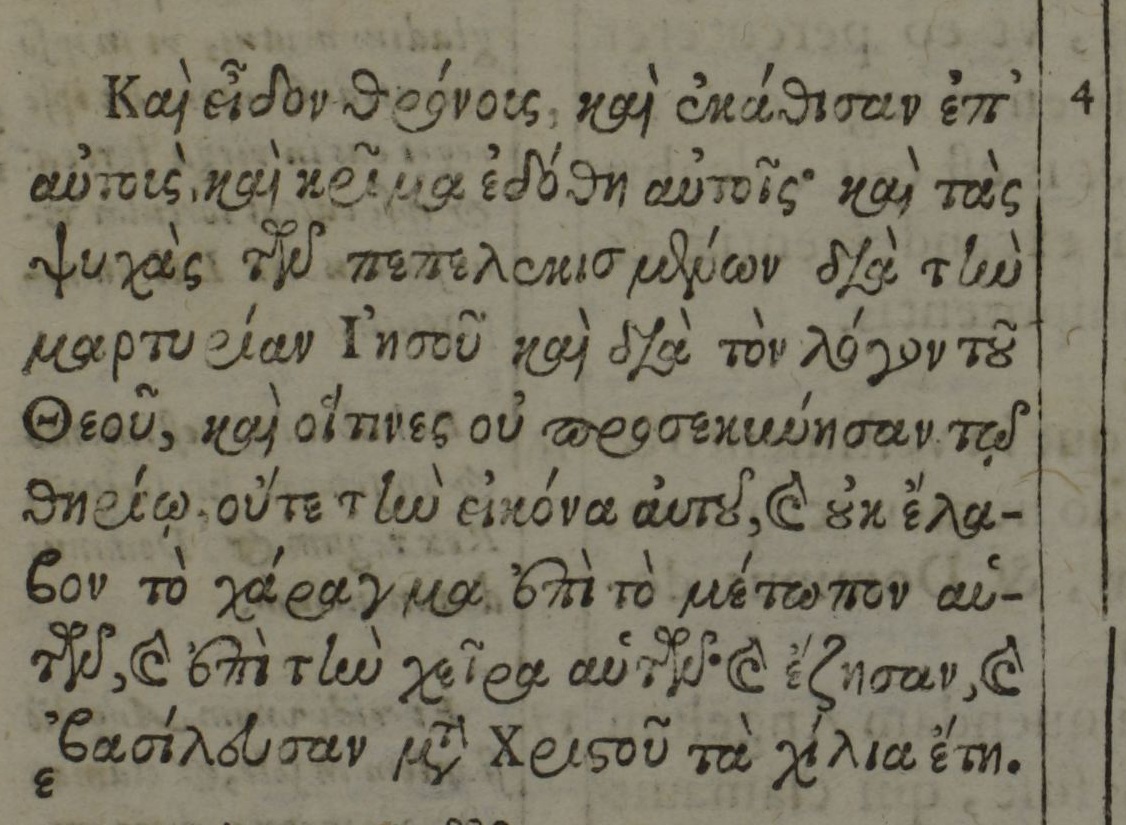 Καὶ εἶδον θρόνοις, καὶ ἐκάθισαν ἐπ᾿ 4
αὐτοις, καὶ κρῖμα ἐδόθη αὐτοῖς· καὶ τὰς
ψυχὰς τῶν πεπελεκισμένων διὰ τὴν
μαρτυρίαν Ἰησοῦ καὶ διὰ τὸν λόγον τοῦ
Θεοῦ, καὶ οἵτινες οὐ προσεκύνησαν τῷ
θηρίῳ, οὔτε τὴν εἰκόνα αὐτοῦ, καὶ οὐκ ἔλα-
βον τὸ χάραγμα ἐπὶ τὸ μέτωπον αὑ-
τῶν, καὶ ἐπὶ τὴν χεῖρα αὑτῶν· καὶ ἔζησαν, καὶ
ἐβασίλευσαν μετὰ Χριστοῦ τὰ χίλια ἔτη.